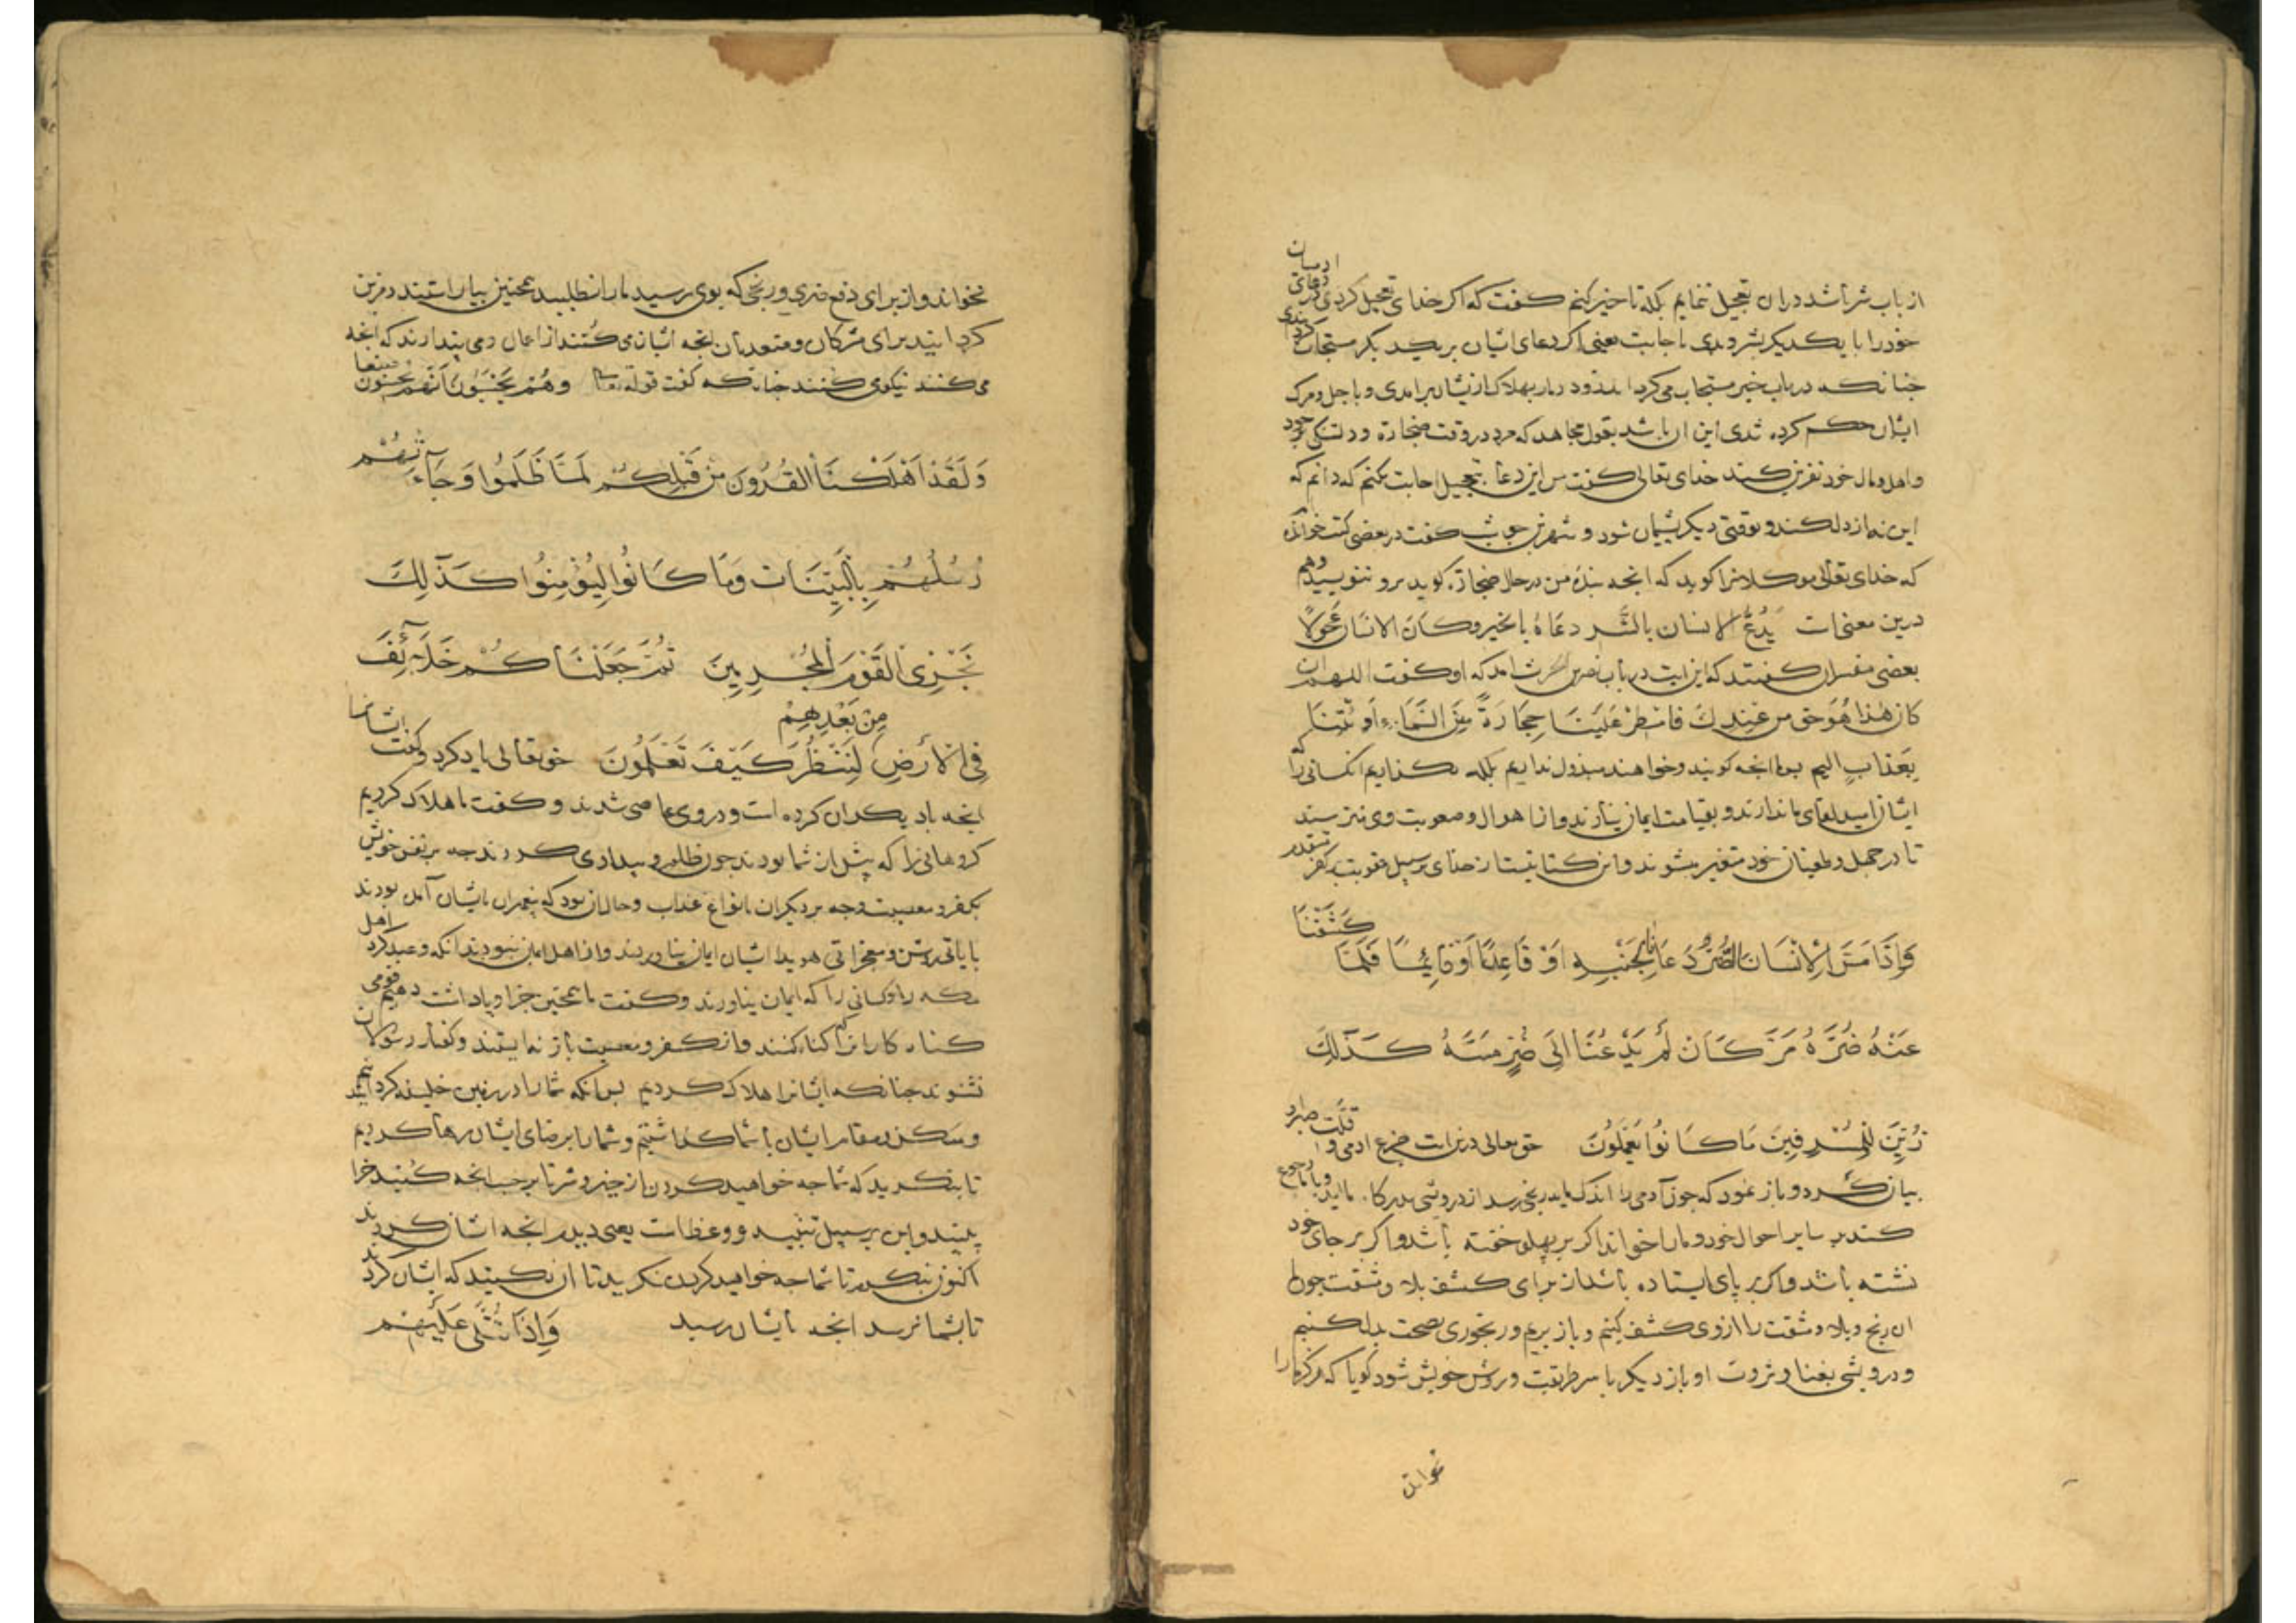 از باب شر باشد دران تعجیل ننمایم بلکه تاخیر کنم کفت که اکر خدای تعجیل کردی در دعای ادمیان
خود را با یکدیکر بشر و بدی باجابت یعنی اکر دعای ایشان بر یکدیکر مستجاب کردانیدی
جنانکه در باب خیر مستجاب می کرداند زود دمار بهلاک ازیشان برامدی و باجل و مرک
ایشان حکم کرده شدی این ان باشد بقول مجاهد که مرد در وقت ضجارة و دلتنکی بر خود
و اهل و مال خود نفرین کند خدای تعالی کفت من این دعا بتعجیل اجابت نکنم که دانم که
این نه از دل کند و بوقتی دیکر پشیمان شود و شهر بن حوشب کفت در بعضی کتب خوانده‌ام
که خدای تعالی موکلانرا کوید که انجه بنده من در حال ضجارة کوید برو ننویسید و هم
درین معنی است یَدْعُ الانسان بالشر دعاءه بالخیر و کان الانسان عَجُولًا
بعضی مفسران کفتند که این ایت در باب نضر بن الحرث امد که او کفت اللهم ان
کان هٰذا هُوَ حق من عِنْدِكَ فامطر عَلَیْنَا حِجَارَةً مِنَ السَّمَاءِ أَو ئْتِنَا
بِعَذابٍ الیم پس ما انجه کویند و خواهند مبذول نداریم بلکه بکذاریم انکسانی را که
ایشان امید لقای ما ندارند و بقیامت ایمان نیارند و از اهوال و صعوبت وی نترسند
تا در جهل و طغیان خود متغیر میشوند و این کنایتیست از خدای بر سبیل عقوبت کفر متقدم
وَإِذَا مَسَّ الْإِنْسَانَ الضُّرُّ دَعَانَا لِجَنْبِهِ أَوْ قَاعِدًا أَوْ قَائِمًا فَلَمَّا كَشَفْنَا
عَنْهُ ضُرَّهُ مَرَّ كَانَ لَمْ يَدْعُنَا إِلَى ضُرٍّ مَسَّهُ كَذٰلِكَ
زُيِّنَ لِلْمُسْرِفِينَ مَا كَانُوا يَعْمَلُونَ حق تعالی درین ایت جزع ادمی و قلت صبر او
بیان کرد و باز نمود که جون آدمی را اندک مایه رنجی رسد از درویشی بدرکاه ما اید و با ما رجوع
کند بر سایر احوال خود و ما را خواند اکر بر پهلو خفته باشد و اکر بر جای خود
نشسته باشد و اکر بر پای ایستاده باشد از برای کشف بلا و مشقت جون ما
ان رنج و بلا و مشقت را از وی کشف کنیم و باز بریم و رنجوری بصحت بدل کنیم
و درویشی بغنا و ثروت او باز دیکر با سر طریقت و روش خویش شود کویا که هرکز ما را
نخواند
نخواند و از برای دفع ضری و رنجی که بوی رسید ما را نطلبید همجنین بیاراستند و مزین
کردانیدند برای مشرکان و متعدیان انجه ایشان می کنند از اعمال و می پندارند که انجه
می کنند نیکوی می کنند جنانکه کفت قوله تعالی وَهُمْ يَحْسَبُونَ أَنَّهُمْ يُحْسِنُونَ صنعا
وَلَقَدْ أَهْلَكْنَا الْقُرُونَ مِنْ قَبْلِكُمْ لَمَّا ظَلَمُوا وَجَآءَتْهُمْ
رُسُلُهُمْ بِالْبَيِّنَاتِ وَمَا كَانُوا لِيُؤْمِنُوا كَذٰلِكَ
نَجْزِى الْقَوْمَ الْمُجْرِمِينَ ثُمَّ جَعَلْنَاكُمْ خَلَآئِفَ
فِى الْأَرْضِ مِنْ بَعْدِهِمْ لِنَنْظُرَ كَيْفَ تَعْمَلُونَ حق تعالی یاد کرد و کفت ایشانرا
انجه با دیکران کرده است و در وی عاصی شدند و کفت ما هلاک کردیم
کروهانی را که پیش از شما بودند جون ظلم و بیدادی کردند جه بر نفس خویش
بکفر و معصیت و جه بر دیکران بانواع عذاب و حال ان بود که پیغمبران بایشان آمده بودند
با یاتی روشن و معجزاتی هویدا ایشان ایمان نیاوردند و از اهل ایمان نبودند انکه وعید کرد اهل
مکه را و کسانی را که ایمان نیاورند و کفت ما همجنین جزا و پاداشت دهیم قومی
کناه کارانرا که کناه کنند و از کفر و معصیت باز نه ایستند و کفتار رسولان
نشنوند جنانکه ایشانرا هلاک کردیم پس انکه شما را در زمین خلیفه کردانیدیم
و مسکن و مقام ایشان با شما کذاشتیم و شما را بر جای ایشان رها کردیم
تا بنکریم که شما جه خواهید کردن از خیر و شر تا بر حسب انجه کنید جزا
بینید و این بر سبیل تنبیه و وعظ است یعنی دیدید انجه ایشان کردند
اکنون بنکرم تا شما جه خواهید کردن نکرید تا ان نکنید که ایشان کردند
تا بشما نرسد انجه بایشان رسید وَإِذَا تُتْلَى عَلَيْهِمْ